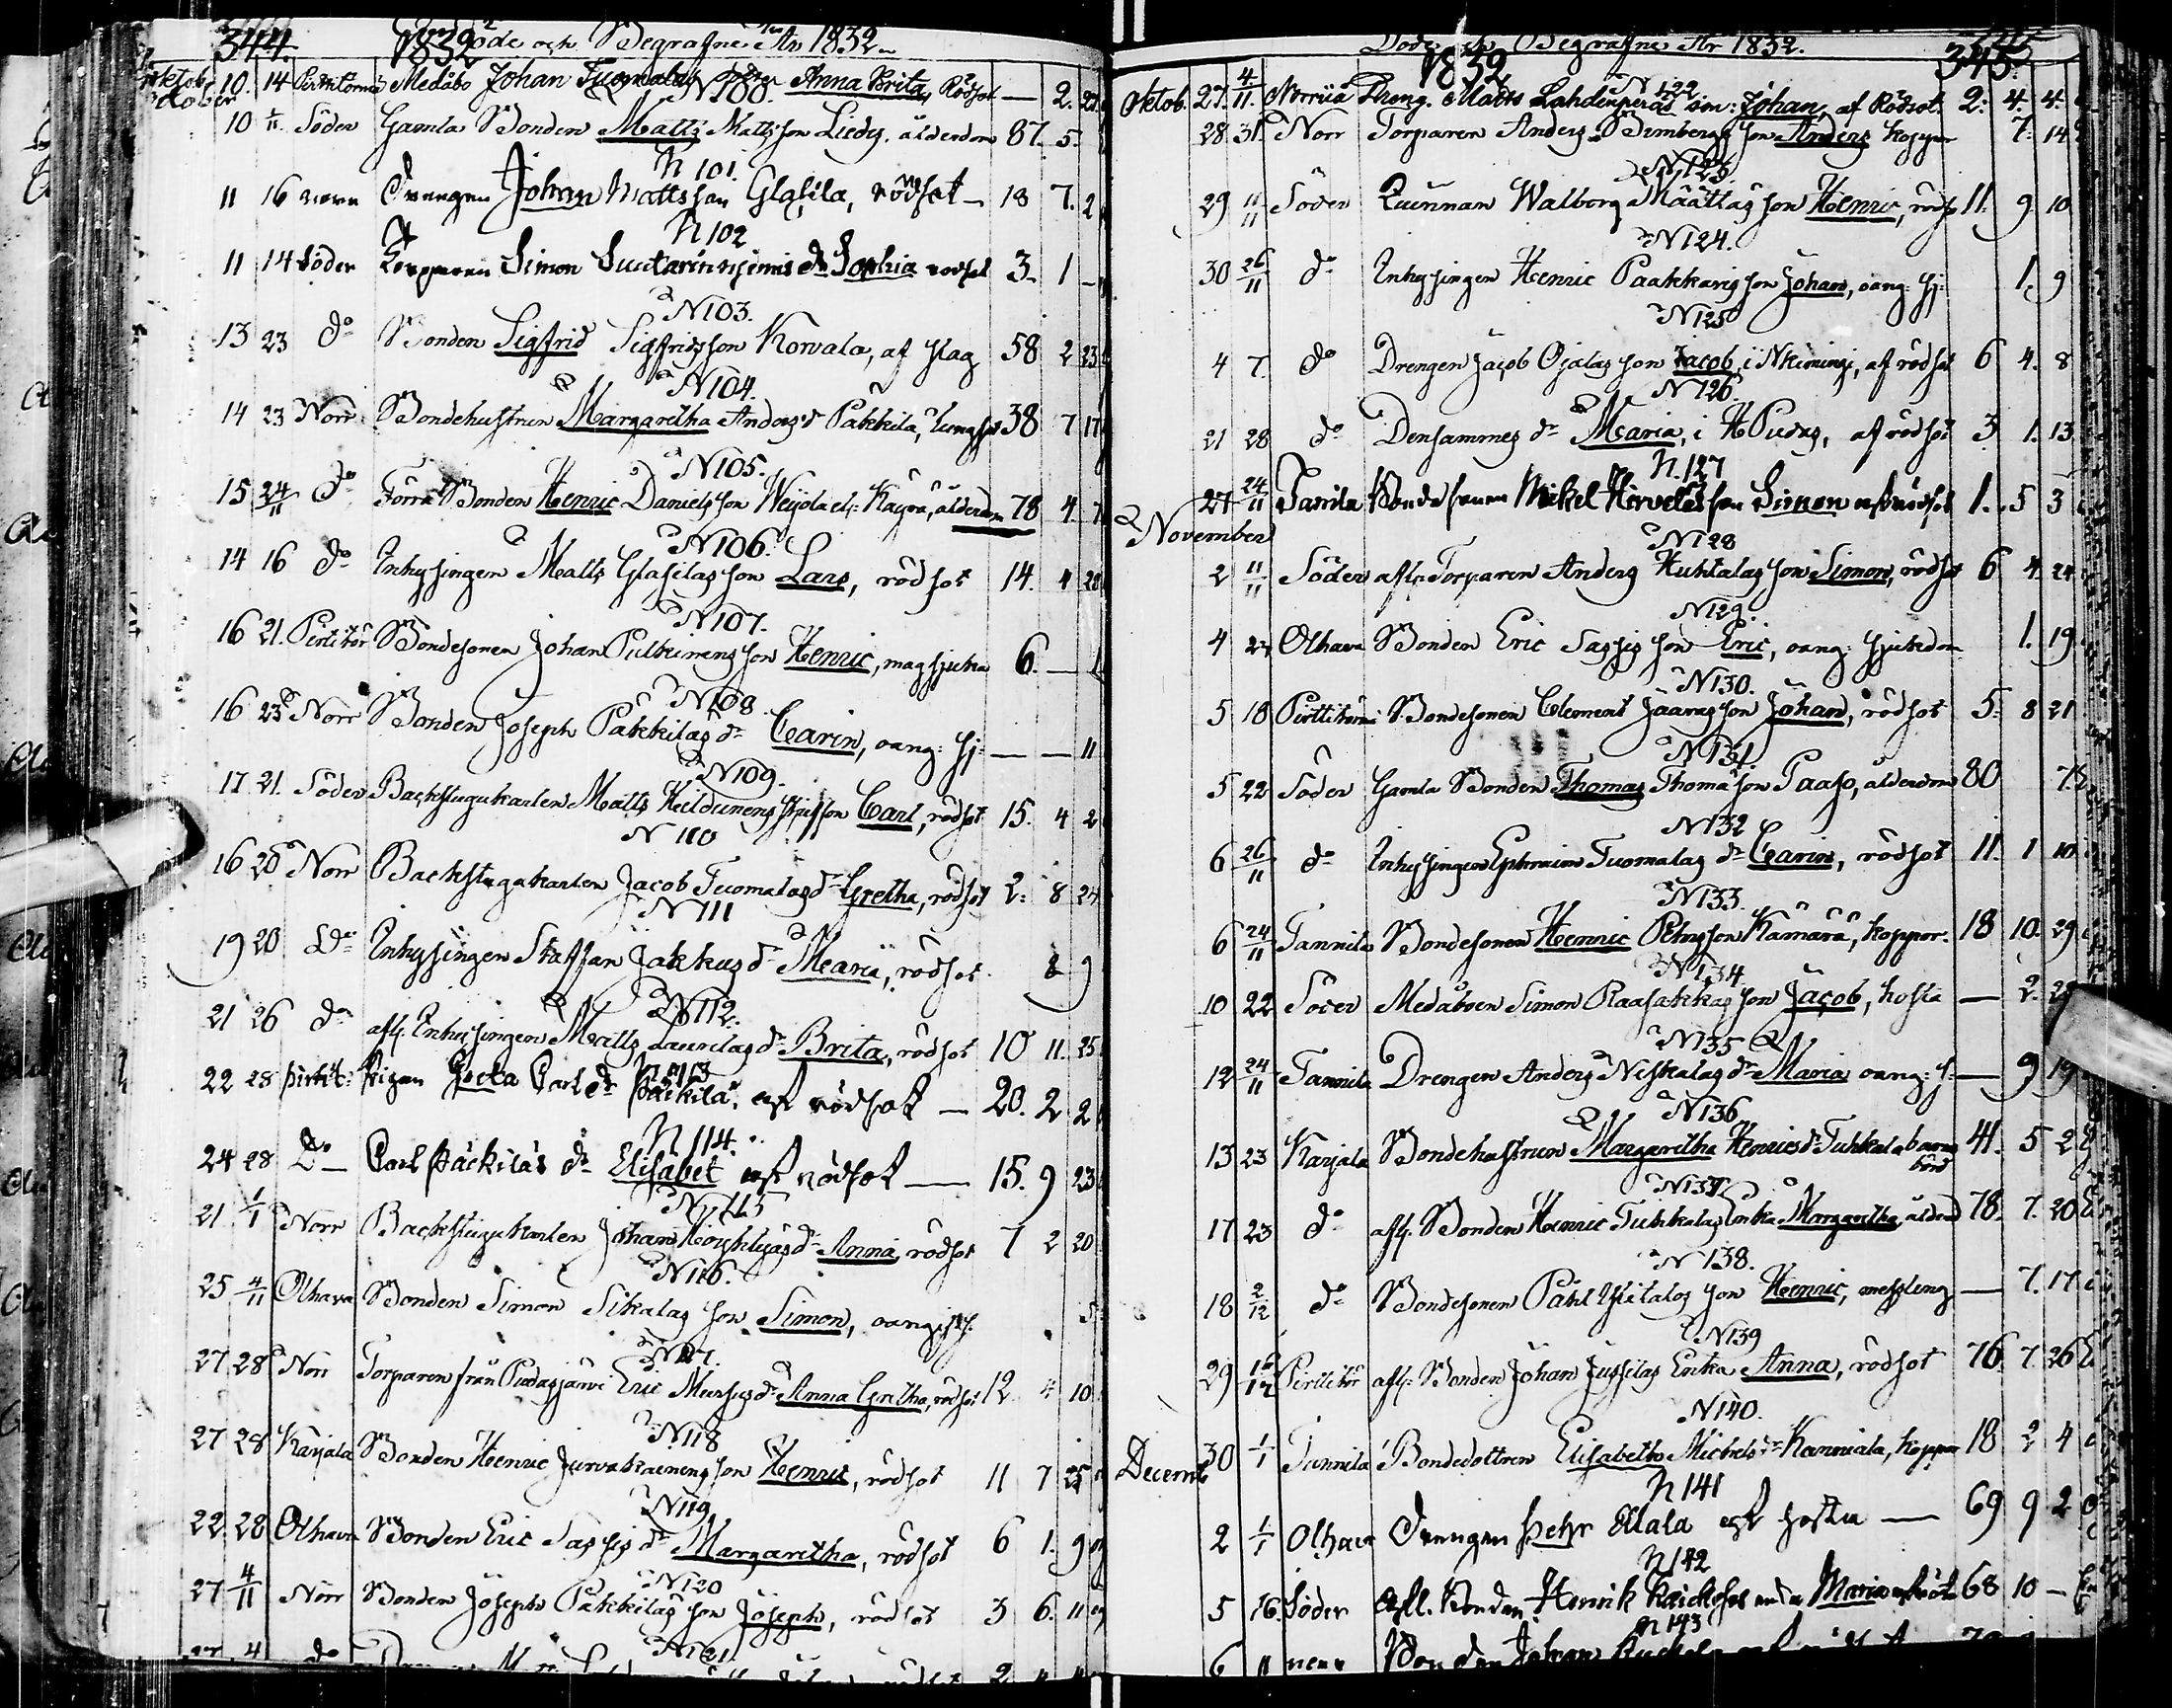 344. 1832 Döde och Begrafne År 1832
oktob: 10. 14 Medåbo Johan Tuomalas Anna Brita, Rödsot — 2.
N 100.
10 1/11 Söder Gamla Bonden Matts Mattsson Liedes. ålderdom 87. 5.
N 101.
11 16 norr Drengen Johan Mattsson Glasila, rödsot — 18 7. 2
N 102
11 14 Söder Torparen Simon dr Sophia rodsot 3. 1 —
N 103.
13 23 do Bonden Sigfrid Sigfridsson Korvala, af slag 58 2 23
N 104.
14 23 Norr Bondehustrun Margaretha Andersdr Pakkila, lungsot 38 7 17
N 105.
15 24/11 do Förra Bonden Henric Danielsson Weijola el: Käyrä, ålderdom 78 4. 7
N 106.
14 16 do Inhysingen Matts Glasilas son Lars, rödsot 14. 4 28
N 107.
16 21. Pirttitör Bondesonen Johan Pulkinens son Henric, magsjuka 6. —
N 108.
16 23 Norr Bonden Joseph Pakkilas dr Carin, oang: sj: — — 11
N 109.
17 21. Söder Backstugukarlen Matts Keildunens styfson Carl, rödsot 15. 4 2
N 110
16 20 Norr Backstugukarlen Jacob Tuomalas dr Gretha, rödsot 2: 8 24
N 111
19 20 Do Inhysingen Staffan Jakkus dr Maria, rödsot 8 9
N 112.
21 26 do afl. Inhysingen Matts Laurilas dr Brita, rödsot 10 11. 25
N 113
22 28 pirtit: pigan Greta Carlsdr Päckilä, af rödsot — 20. 2 2
N 114.
24 28 Do — Carl Päckiläs dr Elisabet af rödsot — 15. 9 23
N 115
21 1/1 Norr Backstugukarlen Johan dr Anna, rödsot 7 2 20
N 116.
25 4/11 Olhava Bonden Simon Sikalas son Simon, oang. sj. 5
N 117.
27 28 Norr Torparen från Pudasjärvi Eric Mursus dr Anna Gretha, rödsot 12 4 10
N 118
27 28 Karjala Bonden Henric Jurvakainens son Henric, rödsot 11 7 25
N 119
22 28 Olhava Bonden Eric Sassis dr Margaretha, rödsot 6 1. 9
N 120
27 4/11 Norr Bonden Joseph Pakkilas son Joseph, rödsot 3 6. 11
N 121.
Döde och Begrafne År 1832.
1832 345.
N 122
Oktob. 27. 4/11. Norr Dreng. Matts Lahdenperäs son: Johan, af Rödsot. 2: 4. 4.
28 31. Norr Torparen Anders Brimbergs son Anders koppor 7. 14
N 123
29 11/11 Söder Quinnan Walborg Määttäs son Henric, rödso 11. 9. 10
N 124.
30 26/11 do Inhysingen Henric Paakkaris son Johan, oang: sj: 1. 9
N 125
4 7. do Drengen Jacob Ojalas son Jacob, i Nkiminge, af rödsot 6 4. 8
N 126
21 28 do Densammes dr Maria, i HPudas, af rödsot 3 1. 13
N. 127
27 24/11 Tanila Bondesonen Mickel Hirveläs son Simon af rödsot 1. 5 3
November
N 128
2 11/11 Söder afl. Torparen Anders Huhtalas son Simon, rödsot 6 4 24
N 129.
4 Olhava Bonden Eric Sassis son Eric, oang: sjukdom 1. 19
N 130.
5 18 Pirttitörmä Bondesonen Clement Jaaras son Johan, rödsot 5: 8 21
N 131
5 22 Söder Gamla Bonden Thomas Thomasson Paaso, ålderdom 80 7.
N 132
6 26/11 do Inhysingen Ephraim Tuomalas dr Carin, rödsot 11. 1 10
N 133.
6 24/11 Tannila Bondesonen Henric Petersson Kämärä, koppor. 18 10. 29
N 134
10 22 Söder Medåboen Simon Raasakkas son Jacob, hosta — 2.
N 135
12 24/11 Tannila Drengen Anders Niskalas dr Maria oang: s: — 9 19
N 136
13 23 Karjala Bondehustrun Margaretha Henricsdr Tuhkala barns börd 41. 5 2
N 137.
17 23 do afl. Bonden Henric Tuhkalas Enka Margaretha, ålderd 78 7. 20
N 138.
18 2/12 do Bondesonen Påhl Ylitalos son Henric, messling — 7. 17
N 139
29 Pirttitör afl: Bonden Johan Jussilas Enka Anna, rödsot 76. 7. 26
N 140.
Decemb 30 1/1 Tannila Bondedottren Elisabeth Michelsdr Kanniala, koppor 18 2 4
N 141
2 1/1 Olhava Drengen Pehr Alala af hosta — 69 9 2
N 142
5 16. Söder Afl. Bonden Henrik enka Maria 68 10 —
N 143
6 11 norr Bonden Johan